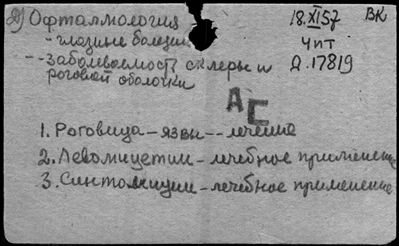 Д) Офтальмология
18.XI57 ВК
- глазные болезни
Чпт
- заболеваемость склеры и
Д.17819
роговой оболочки
АС
1. Роговица – язвы -- лечение
2. Левомицетин – лечебное применение
3. Синтомицин – лечебное применение